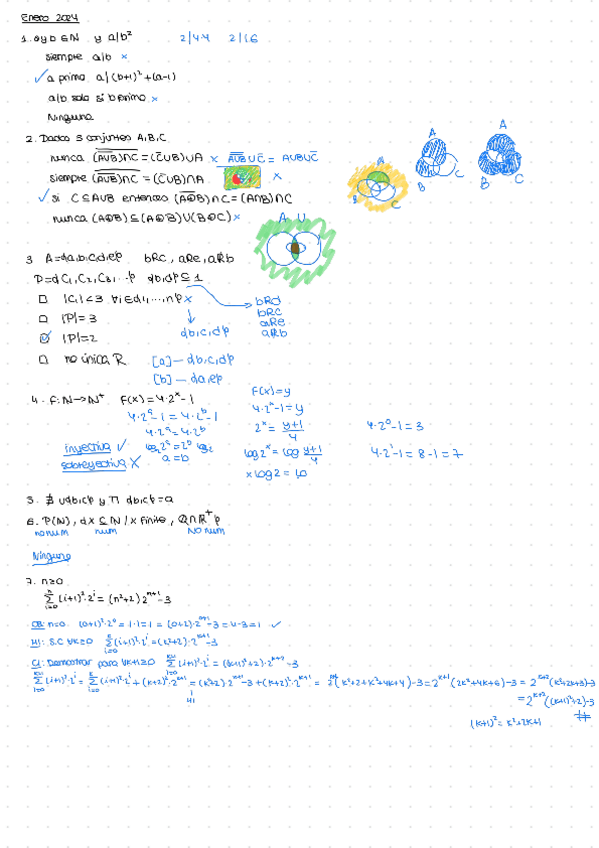 Enero 2024
1. a y b ∈ N y a/b² 2/4·4 2/16
siempre a/b ×
✓ a primo a/(b+1)²+(a-1)
a/b solo si b primo ×
Ninguna
2. Dados 3 conjuntos A, B, C
nunca (A∪B)∩C = (C∪B)∪A × A∪B∪C = A∪B∪C
siempre (A∪B)∩C = (C∪B)∩A ×
✓ si C ⊆ A∪B entonces (A⊕B)∩C = (A∩B)∩C
nunca (A⊕B) ⊆ (A⊕B)∪(B⊕C) ×
A
B C
A
B C
A
B C
A U
3 A={a,b,c,d,e} bRc, aRe, aRb
P={C1, C2, C3, ... {b,d} ⊆ 1
□ |Ci|<3 ∀i∈{1,...,n} ×
□ |P|=3
☑ |P|=2
□ no única R
{b,c,d}
bRd
bRc
aRe
aRb
[a] — {b,c,d}
[b] — {a,e}
4. F: N→N⁺ F(x)=4·2ˣ-1
4·2ᵃ-1 = 4·2ᵇ-1
4·2ᵃ = 4·2ᵇ
log₂ 2ᵃ = 2ᵇ log₂
a = b
inyectiva ✓
sobreyectiva ×
F(x)=y
4·2ˣ-1=y
2ˣ = (y+1)/4
log 2ˣ = log (y+1)/4
x log 2 = log
4·2⁰-1 = 3
4·2¹-1 = 8-1 = 7
5. ∄ ∪{b,c} y ⊓ {b,c}=a
6. P(N), {X ⊆ N / X finito}, Q∩R⁺}
no num num NO num
Ninguna
7. n≥0
Σ(i=0..n) (i+1)²·2ⁱ = (n²+2)2ⁿ⁺¹-3
CB: n=0 (0+1)²·2⁰ = 1·1=1 = (0+2)·2⁰⁺¹-3 = 4-3=1 ✓
HI: S.C ∀K≥0 Σ(i=0..K) (i+1)²·2ⁱ = (K²+2)·2ᴷ⁺¹-3
CI: Demostrar para ∀K+1≥0 Σ(i=0..K+1) (i+1)²·2ⁱ = ((K+1)²+2)·2ᴷ⁺²-3
Σ(i=0..K+1) (i+1)²·2ⁱ = Σ(i=0..K) (i+1)²·2ⁱ + (K+2)²·2ᴷ⁺¹ = (K²+2)·2ᴷ⁺¹-3+(K+2)²·2ᴷ⁺¹ = 2ᴷ⁺¹(K²+2+K²+4K+4)-3 = 2ᴷ⁺¹(2K²+4K+6)-3 = 2ᴷ⁺²(K²+2K+3)-3
HI
= 2ᴷ⁺²((K+1)²+2)-3
(K+1)² = K²+2K+1